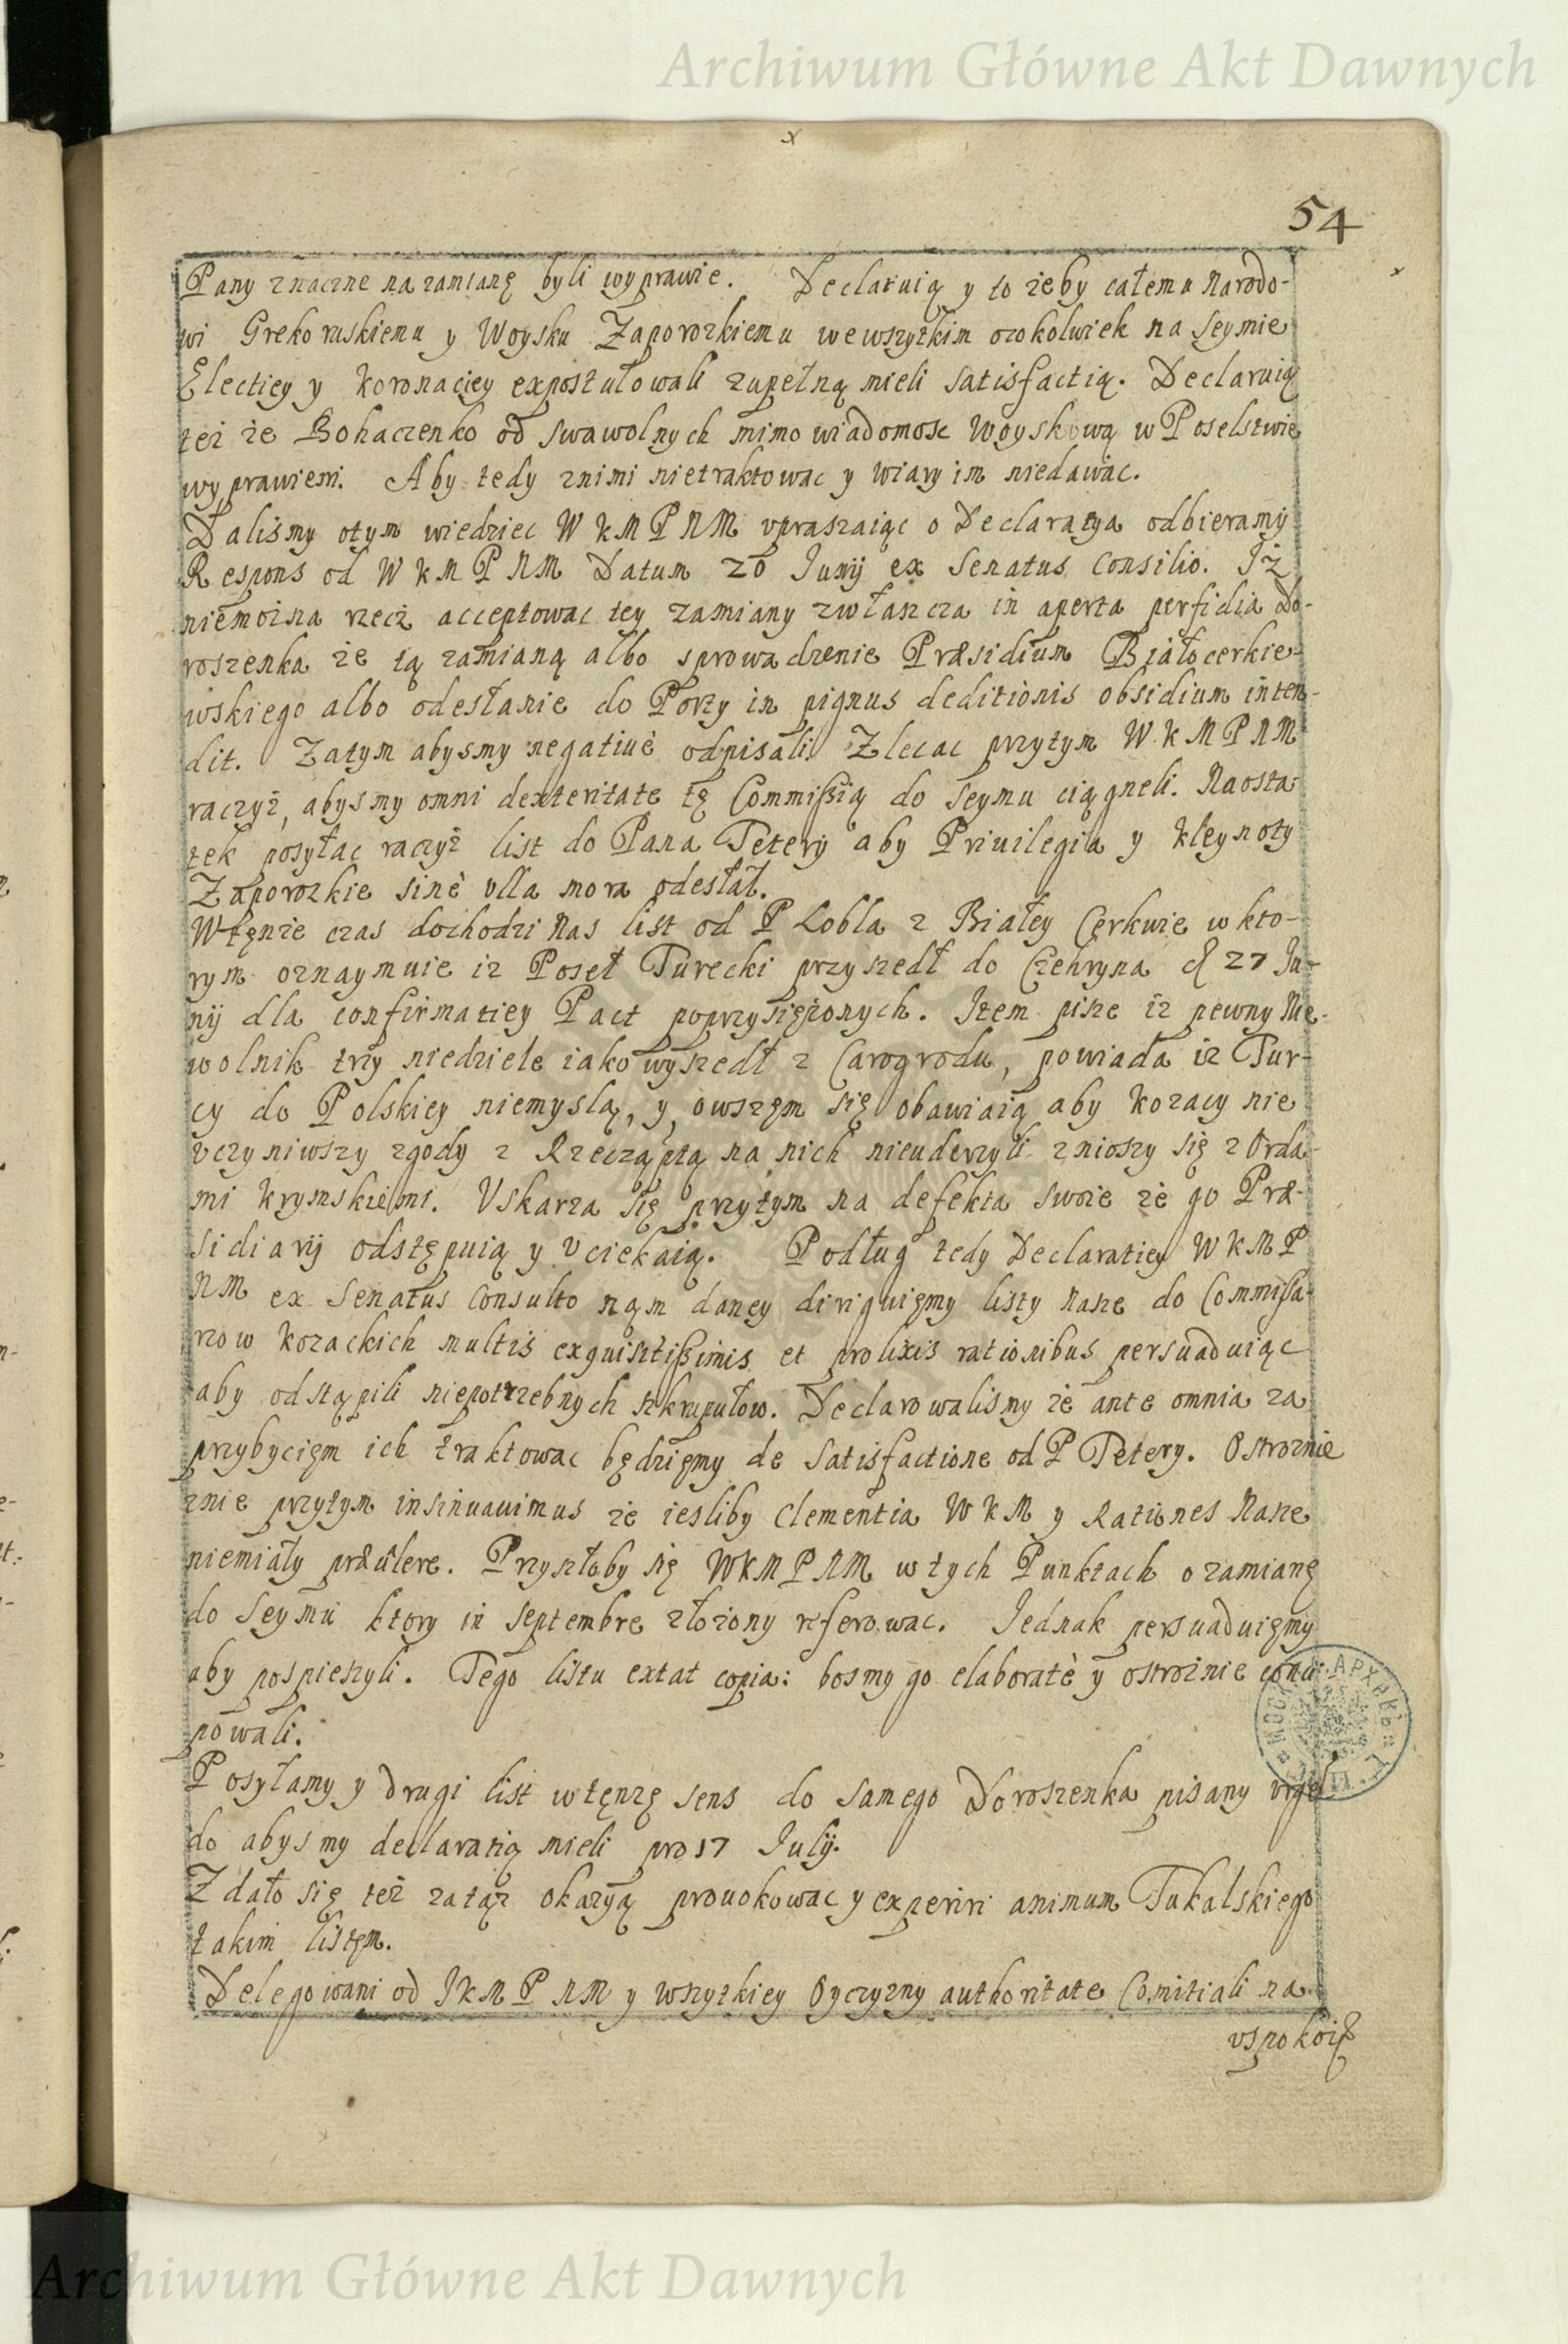 Archiwum Główne Akt Dawnych
54
Pany znaczne na zamianę byli wyprawie. Declaruią y to żeby całemu Narodo-
wi Grekoruskiemu y Woysku Zaporozkiemu wewszytkim ocokolwiek na Seymie
Electiey y Koronaciey expostułowali zupełną mieli satisfactią. Declaruią
też że Bohaczenko od swawolnych mimo wiadomosc Woyskową w Poselstwie
wyprawieni. Aby tedy znimi nietraktowac y wiary im niedawac.
Dalismy otym wiedziec W K M P N M vpraszaiąc o Declaratya odbieramy
Respons od W K M P N M Datum 20 Junij ex Senatus Consilio. Iż
niemożna rzecz acceptowac tey zamiany zwłaszcza in aperta perfidia Do-
roszenka że tą zamianą albo sprowadzenie Præsidium Białocerkie-
wskiego albo odesłanie do Porty in pignus deditionis obsidium inten-
dit. Zatym abysmy negatiuè odpisali. Zlecac przytym W K M P N M
raczył, abysmy omni dexteritate tę Commißią do Seymu ciągneli. Naosta-
tek posyłac raczył list do Pana Tetery aby Priuilegia y Kleynoty
Zaporozkie sinè vlla mora odesłał.
Wtęnże czas dochodzi Nas list od P Lobla z Białey Cerkwie w kto-
rym oznaymuie iz Poseł Turecki przyszedł do Czehryna d 27 Ju-
nij dla confirmatiey Pact poprzysiężonych. Item pisze iz pewny Nie-
wolnik trzy niedziele iako wyszedł z Carogrodu, powiada iz Tur-
cy do Polskiey niemyslą, y owszęm się obawiaią aby Kozacy nie
vczyniwszy zgody z Rzecząptą na nich nieuderzyli zniosszy się z Orda-
mi Krymskiemi. Vskarza się przytym na defekta swoie że go Præ-
sidiarij odstępuią y Vciekaią. Podług tedy Declaratiey W K M P
N M ex Senatus Consulto nąm daney diriguięmy listy Nasze do Commißa-
rzow Kozackich multis exquisitißimis et prolixis rationibus persuaduiąc
aby odstąpili niepotrzebnych szkrupułow. Declarowalismy że ante omnia za
przybycięm ich traktowac będzięmy de Satisfactione od P Tetery. Ostroznie
znie przytym insinuauimus że iesliby Clementia W K M y Rationes Nasze
niemiały præualere. Przyszłoby się W K M P N M w tych Punktach o zamianę
do Seymu ktory in Septembre złożony referowac. Jednak persuaduięmy
aby pospieszyli. Tego listu extat copia: bosmy go elaboratè y ostrożnie conci-
powali.
Posyłamy y drugi list wtęnżę sens do samego Doroszenka pisany vrgen
do abysmy declaratią mieli pro 17 Julij.
Zdało się też zatąż okazyą prouokowac y experiri animum Tukalskiego
takim listęm.
Delegowani od J K M P N M y wszytkiey Oyczyzny authoritate Comitiali na
vspokoię
Archiwum Główne Akt Dawnych